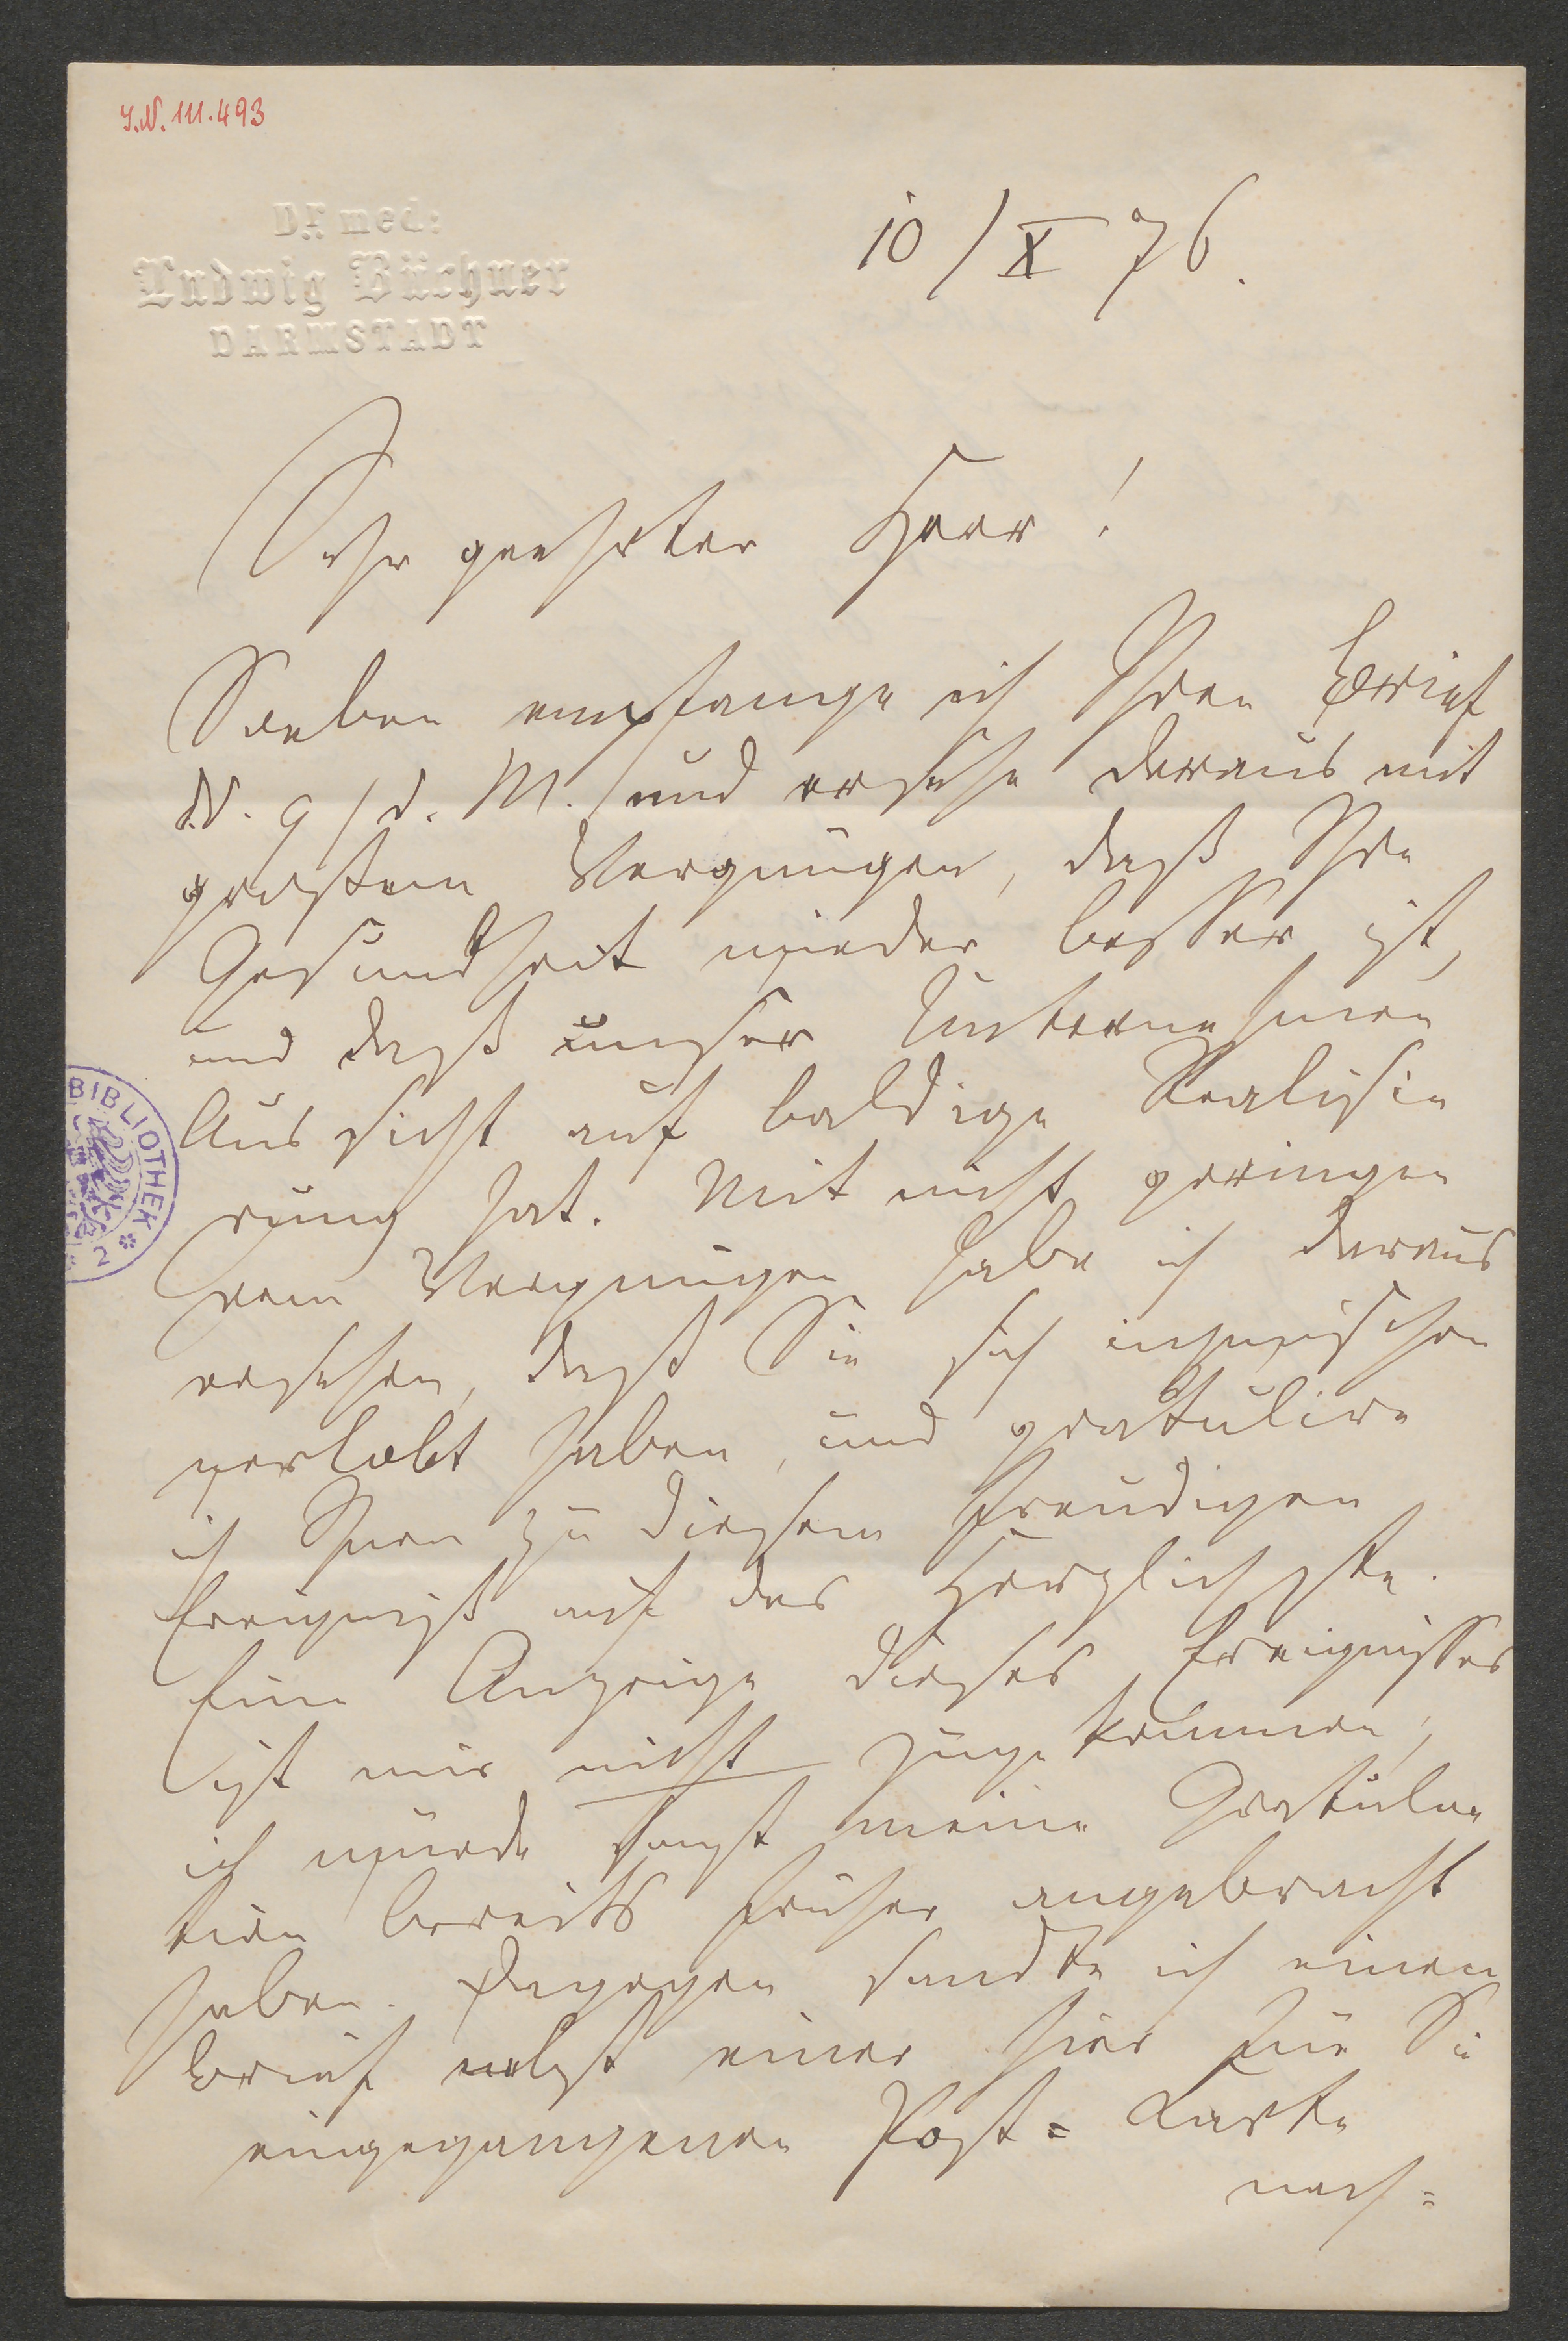 I.N. 111.493
Dr. med:
Ludwig Büchner
DARMSTADT
10/X 76.
Sehr geehrter Herr!
Soeben empfange ich Ihren Brief
v. 9/d. M. und ersehe daraus mit
großem Vergnügen, daß Ihre
Gesundheit wieder besser ist,
und daß unser Unternehmen
Aussicht auf baldige Realisie
rung hat. Mit nicht geringe
rem Vergnügen habe ich daraus
ersehen, daß Sie sich inzwischen
verlobt haben, und gratulire
ich Ihnen zu diesem freudigen
Ereigniß auf das Herzlichste.
Eine Anzeige dieses Ereignisses
ist mir nicht zugekommen;
ich würde sonst meine Gratula
tion bereits früher angebracht
haben. Dagegen sandte ich einen
Brief nebst einer hier für Sie
eingegangenen Post-Karte
nach-
BIBLIOTHEK
2